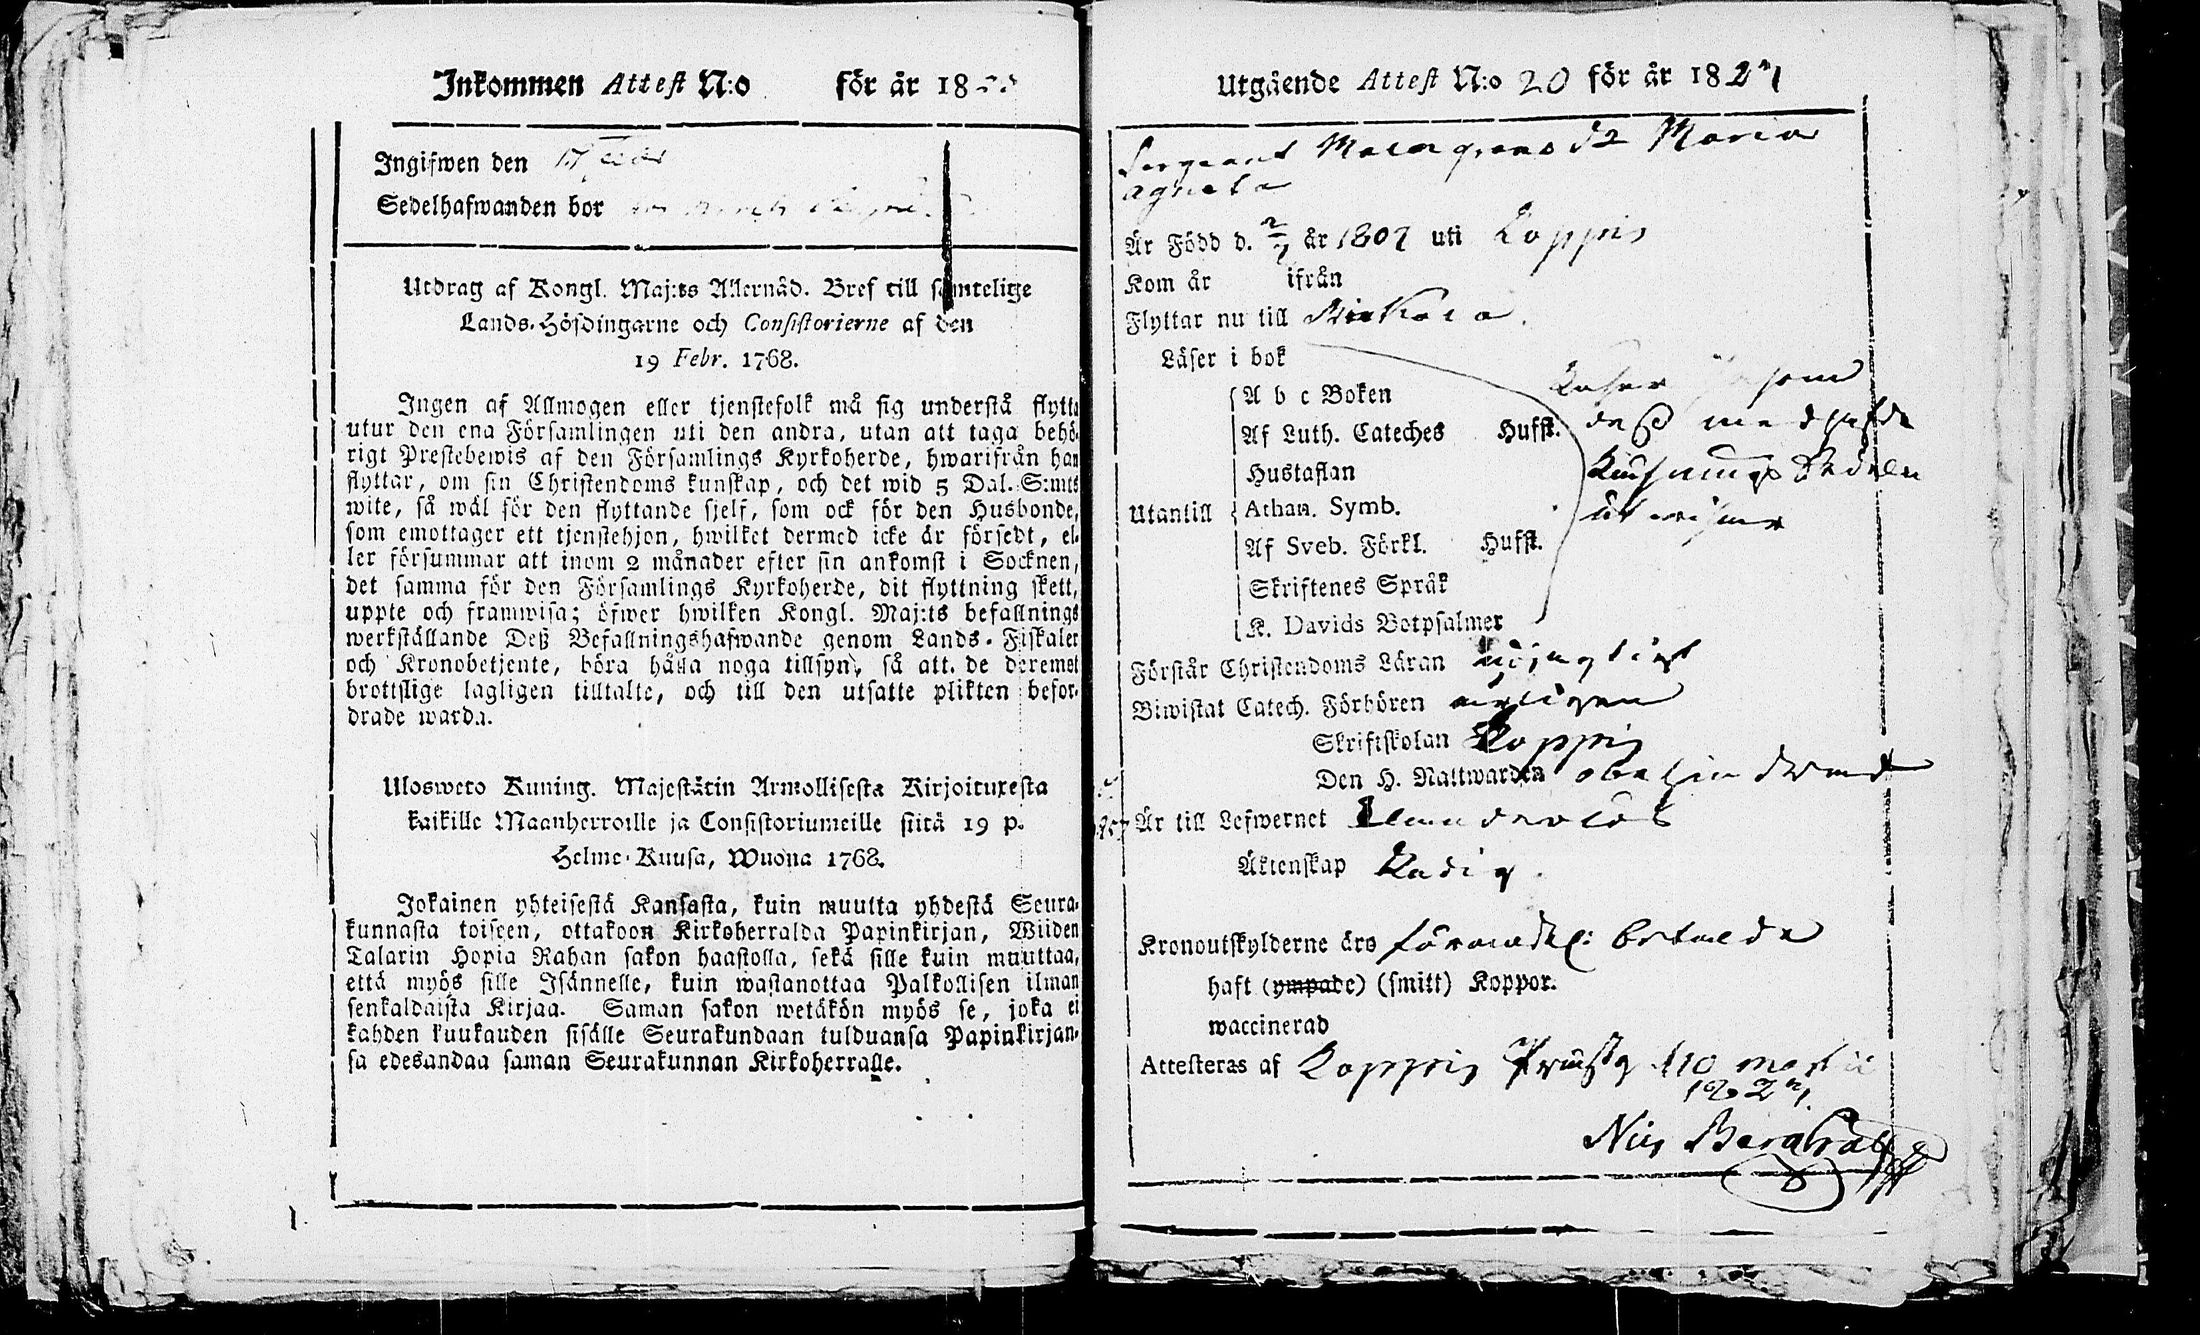 Inkommen Attest N:o för år 18
Ingifwen den
Sedelhafwanden bor
Utdrag af Kongl. Maj:ts Allernåd. Bref till samtelige
Lands-Höfdingarne och Consistorierne af den
19 Febr. 1768.
Ingen af Allmogen eller tjenstefolk må sig understå flytta
utur den ena Församlingen uti den andra, utan att taga behö-
rigt Prestebewis af den Församlings Kyrkoherde, hwarifrån han
flyttar, om sin Christendoms kunskap, och det wid 5 Dal. S:mts
wite, så wäl för den flyttande sjelf, som ock för den Husbonde,
som emottager ett tjenstehjon, hwilket dermed icke är försedt, el-
ler försummar att inom 2 månader efter sin ankomst i Socknen,
det samma för den Församlings Kyrkoherde, dit flyttning skett,
uppte och framwisa; öfwer hwilken Kongl. Maj:ts befallnings
werkställande Deß Befallningshafwande genom Lands-Fiskaler
och Kronobetjente, böra hålla noga tillsyn, så att de deremot
brottslige lagligen tilltalte, och till den utsatte plikten befor-
drade warda.
Ulosweto Kuning. Majestätin Armollisesta Kirjoituxesta
kaikille Maanherroille ja Consistoriumeille siitä 19 p.
Helme-Kuusa, Wuona 1768.
Jokainen yhteisestä Kansasta, kuin muutta yhdestä Seura-
kunnasta toiseen, ottakoon Kirkoherralda Papinkirjan, Wiiden
Talarin Hopia Rahan sakon haastolla, sekä sille kuin muuttaa,
että myös sille Isännelle, kuin wastanottaa Palkollisen ilman
senkaldaista Kirjaa. Saman sakon wetäkön myös se, joka ei
kahden kuukauden sisälle Seurakundaan tulduansa Papinkirjan-
sa edesandaa saman Seurakunnan Kirkoherralle.
Utgående Attest N:o 20 för år 182
Sergeant Malmgrens dr Maria
Agneta
Är Född d. år 1807 uti Koppis
Kom år ifrån
Flyttar nu till
Läser i bok
A b c Boken
Af Luth. Cateches Hufst. deß medhafde
Hustaflan
Utantill Athan. Symb. utwisar
Af Sveb. Förkl. Hufst.
Skriftenes Språk
K. Davids Botpsalmer
Förstår Christendoms Läran nöjagtigt
Biwistat Catech. Förhören årligen
Skriftskolan Koppis
Den H. Nattwarden obehindrad
Är till Lefwernet Klanderlös
Äktenskap Ledig
Kronoutskylderne äro betalde
haft (ympade) (smitt) Koppor.
waccinerad
Attesteras af Koppis Prästg. d 10 Martii
182
Nils